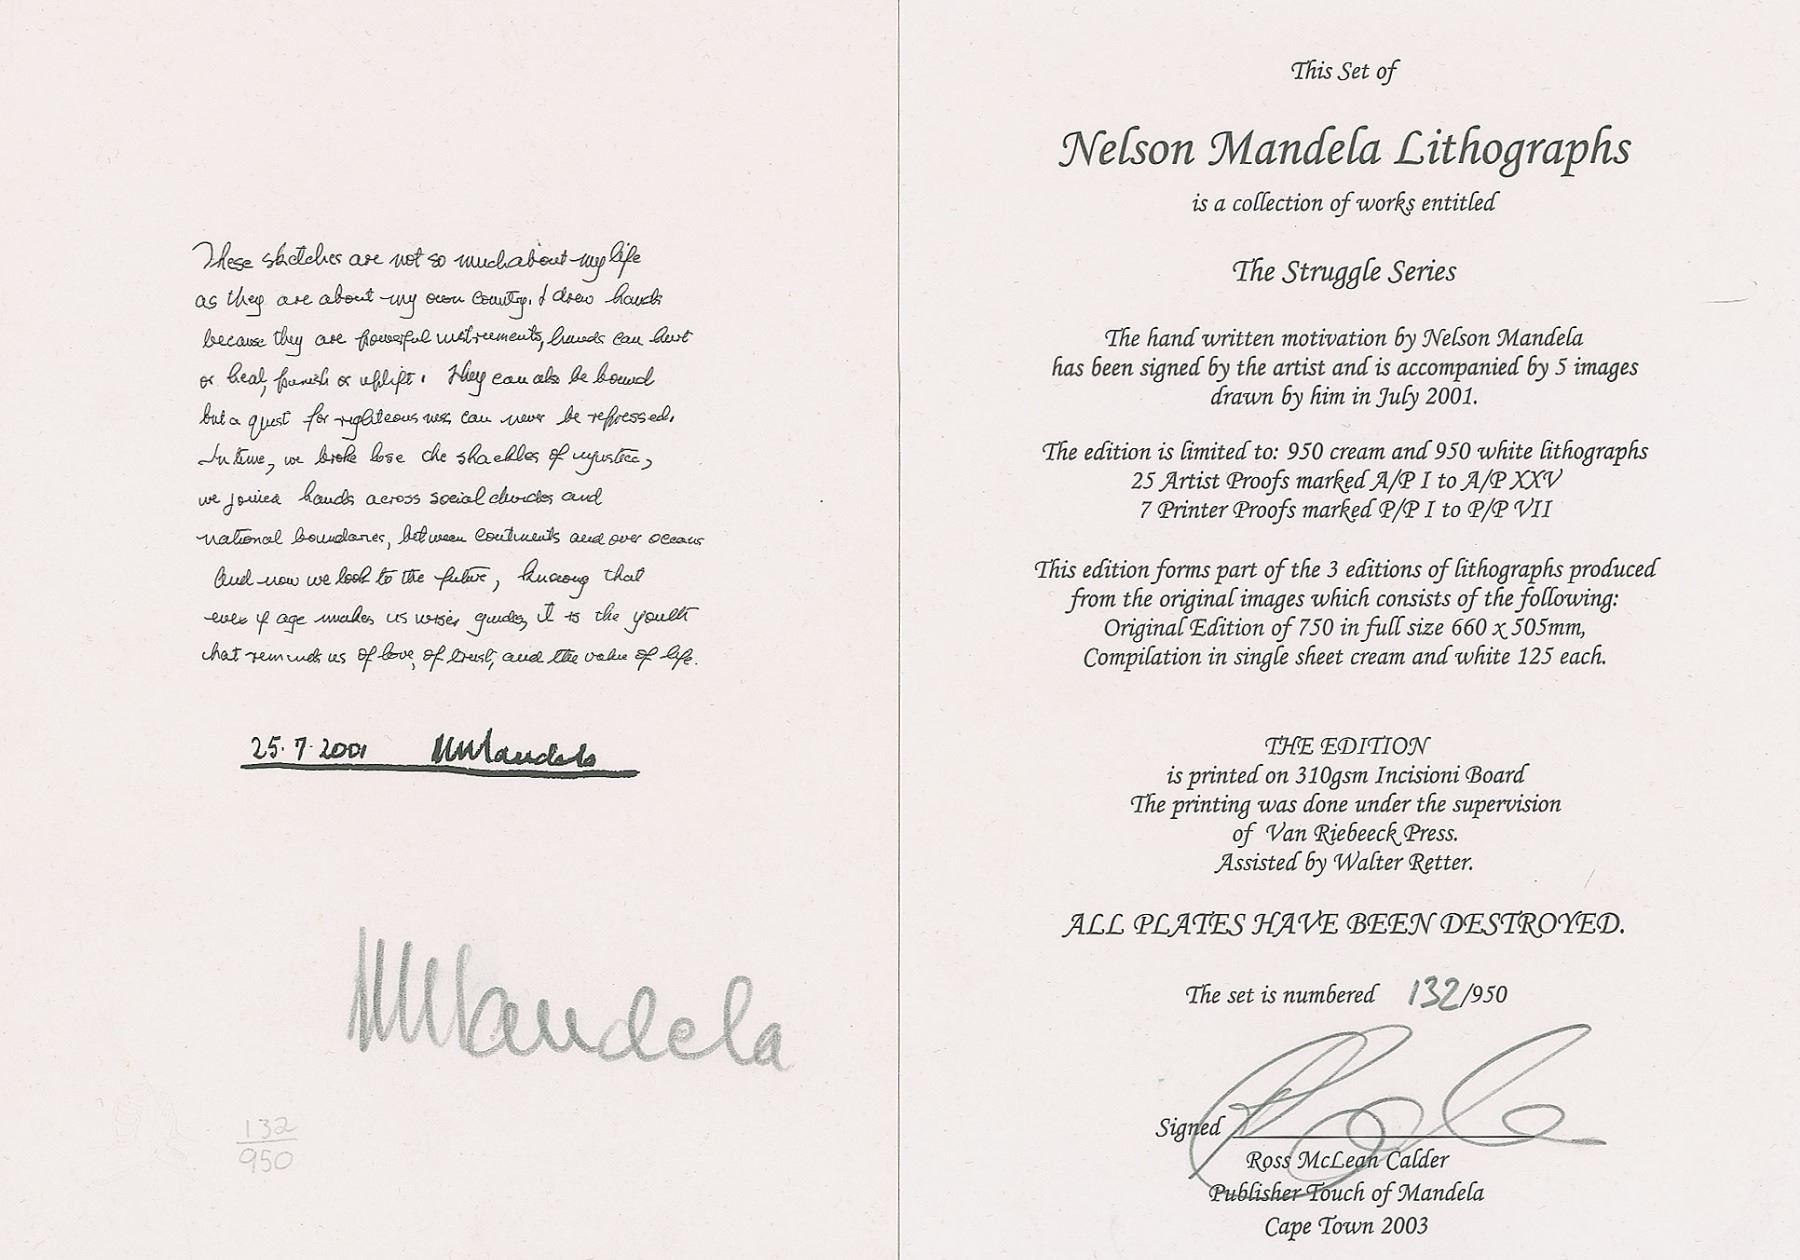 These sketches are not so much about my life
as they are about my own country. I drew hands
because they are powerful instruments, hands can hurt
or heal, punish or uplift. They can also be bound
but a quest for righteousness can never be repressed.
In time, we broke lose the shackles of injustice,
we joined hands across social divides and
national boundaries, between continents and over oceans
And now we look to the future, knowing that
even if age makes us wiser guides, it is the youth
that reminds us of love, of trust, and the value of life.
25.7.2001 NMandela
NMandela
132
950
This Set of
Nelson Mandela Lithographs
is a collection of works entitled
The Struggle Series
The hand written motivation by Nelson Mandela
has been signed by the artist and is accompanied by 5 images
drawn by him in July 2001.
The edition is limited to: 950 cream and 950 white lithographs
25 Artist Proofs marked A/P I to A/P XXV
7 Printer Proofs marked P/P I to P/P VII
This edition forms part of the 3 editions of lithographs produced
from the original images which consists of the following:
Original Edition of 750 in full size 660 x 505mm,
Compilation in single sheet cream and white 125 each.
THE EDITION
is printed on 310gsm Incisioni Board
The printing was done under the supervision
of Van Riebeeck Press.
Assisted by Walter Retter.
ALL PLATES HAVE BEEN DESTROYED.
The set is numbered 132/950
Signed
Ross McLean Calder
Publisher Touch of Mandela
Cape Town 2003